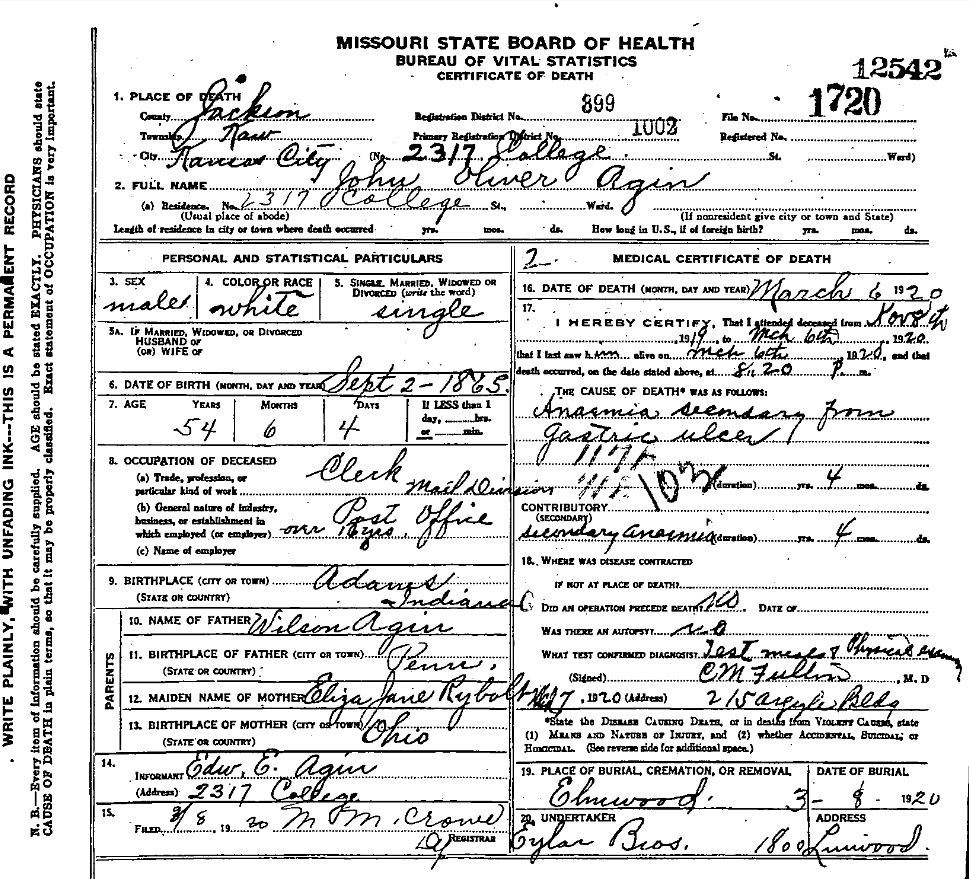 MISSOURI STATE BOARD OF HEALTH
BUREAU OF VITAL STATISTICS
CERTIFICATE OF DEATH
12542
1. PLACE OF DEATH
County Jackson Registration District No. 399 File No. 1720
Township Kaw Primary Registration District No. 1002 Registered No.
City Kansas City (No. 2317 College St. Ward)
2. FULL NAME John Oliver Agin
(a) Residence. No. 2317 College St., Ward.
(Usual place of abode) (If nonresident give city or town and State)
Length of residence in city or town where death occurred yrs. mos. ds. How long in U.S., if of foreign birth? yrs. mos. ds.
PERSONAL AND STATISTICAL PARTICULARS
3. SEX 4. COLOR OR RACE 5. SINGLE, MARRIED, WIDOWED OR
DIVORCED (write the word)
male white single
5A. IF MARRIED, WIDOWED, OR DIVORCED
HUSBAND OF
(OR) WIFE OF
6. DATE OF BIRTH (MONTH, DAY AND YEAR) Sept 2-1865
7. AGE YEARS MONTHS DAYS If LESS than 1
day, hrs.
or min.
54 6 4
8. OCCUPATION OF DECEASED
(a) Trade, profession, or
particular kind of work Clerk Mail Division
(b) General nature of industry,
business, or establishment in
which employed (or employer) Post Office
over yrs.
(c) Name of employer
9. BIRTHPLACE (CITY OR TOWN) Adams
(STATE OR COUNTRY) Indiana
PARENTS
10. NAME OF FATHER Wilson Agin
11. BIRTHPLACE OF FATHER (CITY OR TOWN) Penn.
(STATE OR COUNTRY)
12. MAIDEN NAME OF MOTHER Eliza Jane Rybolt
13. BIRTHPLACE OF MOTHER (CITY OR TOWN) Ohio
(STATE OR COUNTRY)
14.
INFORMANT Edw. E. Agin
(Address) 2317 College
15.
FILED 3/8 1920 M. M. Crowe
REGISTRAR
2 MEDICAL CERTIFICATE OF DEATH
16. DATE OF DEATH (MONTH, DAY AND YEAR) March 6 1920
17.
I HEREBY CERTIFY, That I attended deceased from Nov 8th
1919, to Mch 6th, 1920,
that I last saw him alive on Mch 6th, 1920, and that
death occurred, on the date stated above, at 8:20 P. m.
THE CAUSE OF DEATH* WAS AS FOLLOWS:
Anaemia secondary from
gastric ulcer
103
(duration) yrs. 4 mos. ds.
CONTRIBUTORY
(SECONDARY)
secondary anaemia (duration) yrs. 4 mos. ds.
18. WHERE WAS DISEASE CONTRACTED
IF NOT AT PLACE OF DEATH?
DID AN OPERATION PRECEDE DEATH? No DATE OF
WAS THERE AN AUTOPSY? no
WHAT TEST CONFIRMED DIAGNOSIS? Test meals & Physical exam
(Signed) C M Fulton, M. D
, 1920 (Address) 215 Argyle Bldg
*State the DISEASE CAUSING DEATH, or in deaths from VIOLENT CAUSES, state
(1) MEANS AND NATURE OF INJURY, and (2) whether ACCIDENTAL, SUICIDAL, or
HOMICIDAL. (See reverse side for additional space.)
19. PLACE OF BURIAL, CREMATION, OR REMOVAL DATE OF BURIAL
Elmwood. 3-8 1920
20. UNDERTAKER ADDRESS
Eylar Bros. 1800 Linwood.
N. B.—Every item of information should be carefully supplied. AGE should be stated EXACTLY. PHYSICIANS should state
CAUSE OF DEATH in plain terms, so that it may be properly classified. Exact statement of OCCUPATION is very important.
WRITE PLAINLY, WITH UNFADING INK---THIS IS A PERMANENT RECORD